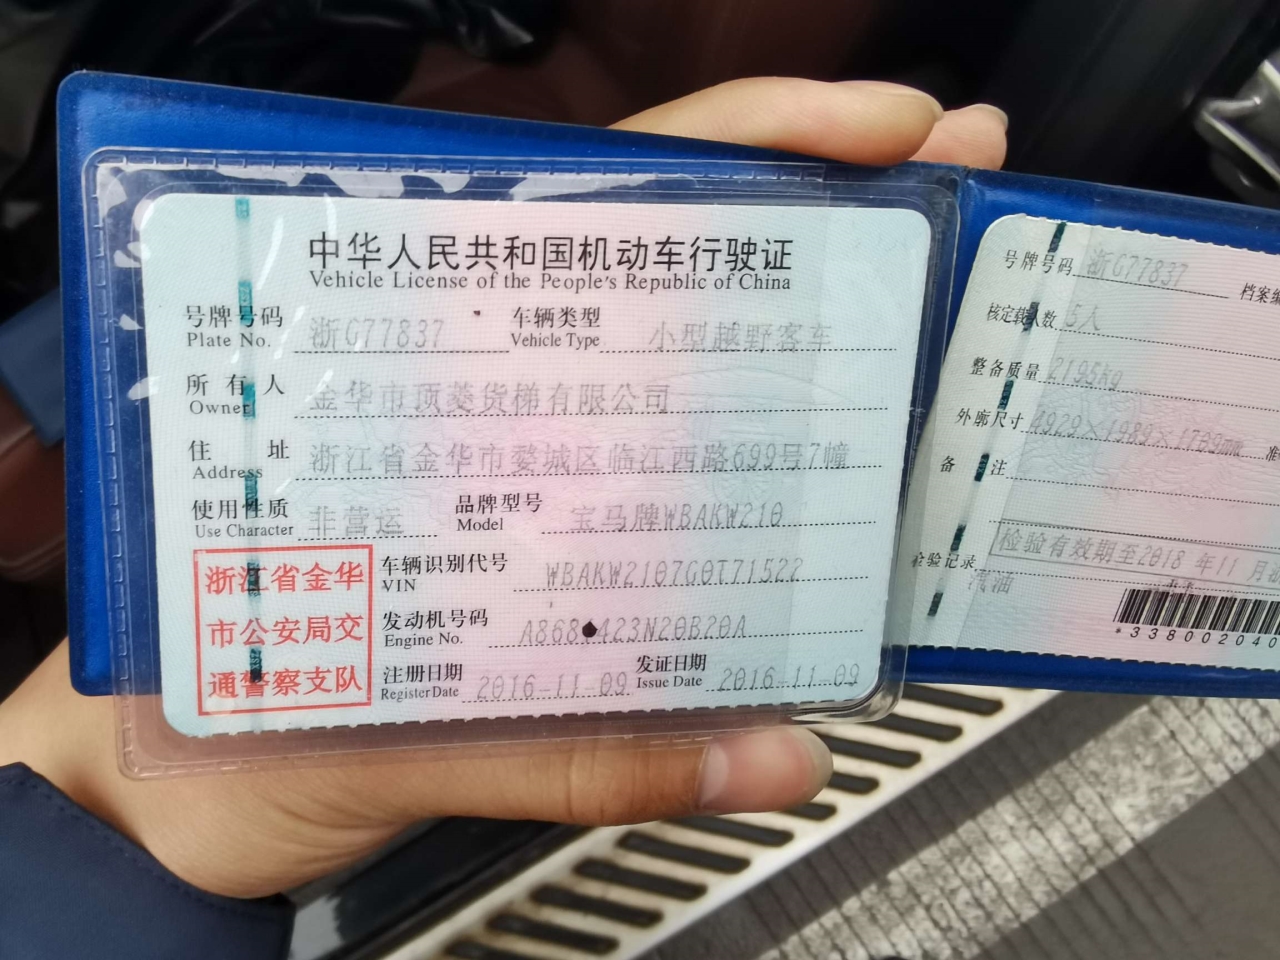 中华人民共和国机动车行驶证
Vehicle License of the People's Republic of China
号牌号码 浙G77837 车辆类型 小型越野客车
Plate No. Vehicle Type
所有人 金华市顶菱货梯有限公司
Owner
住址 浙江省金华市婺城区临江西路699号7幢
Address
使用性质 非营运 品牌型号 宝马牌WBAKW210
Use Character Model
浙江省金华
市公安局交
通警察支队
车辆识别代号 WBAKW2107G0T71522
VIN
发动机号码 A868 423N20B20A
Engine No.
注册日期 2016-11-09 发证日期 2016-11-09
Register Date Issue Date
号牌号码 浙G77837 档案编
核定载人数 5人
整备质量 2195kg
外廓尺寸 4929×1989×1709mm 准
备注
检验有效期至2018年11月
检验记录
汽油
*338002040